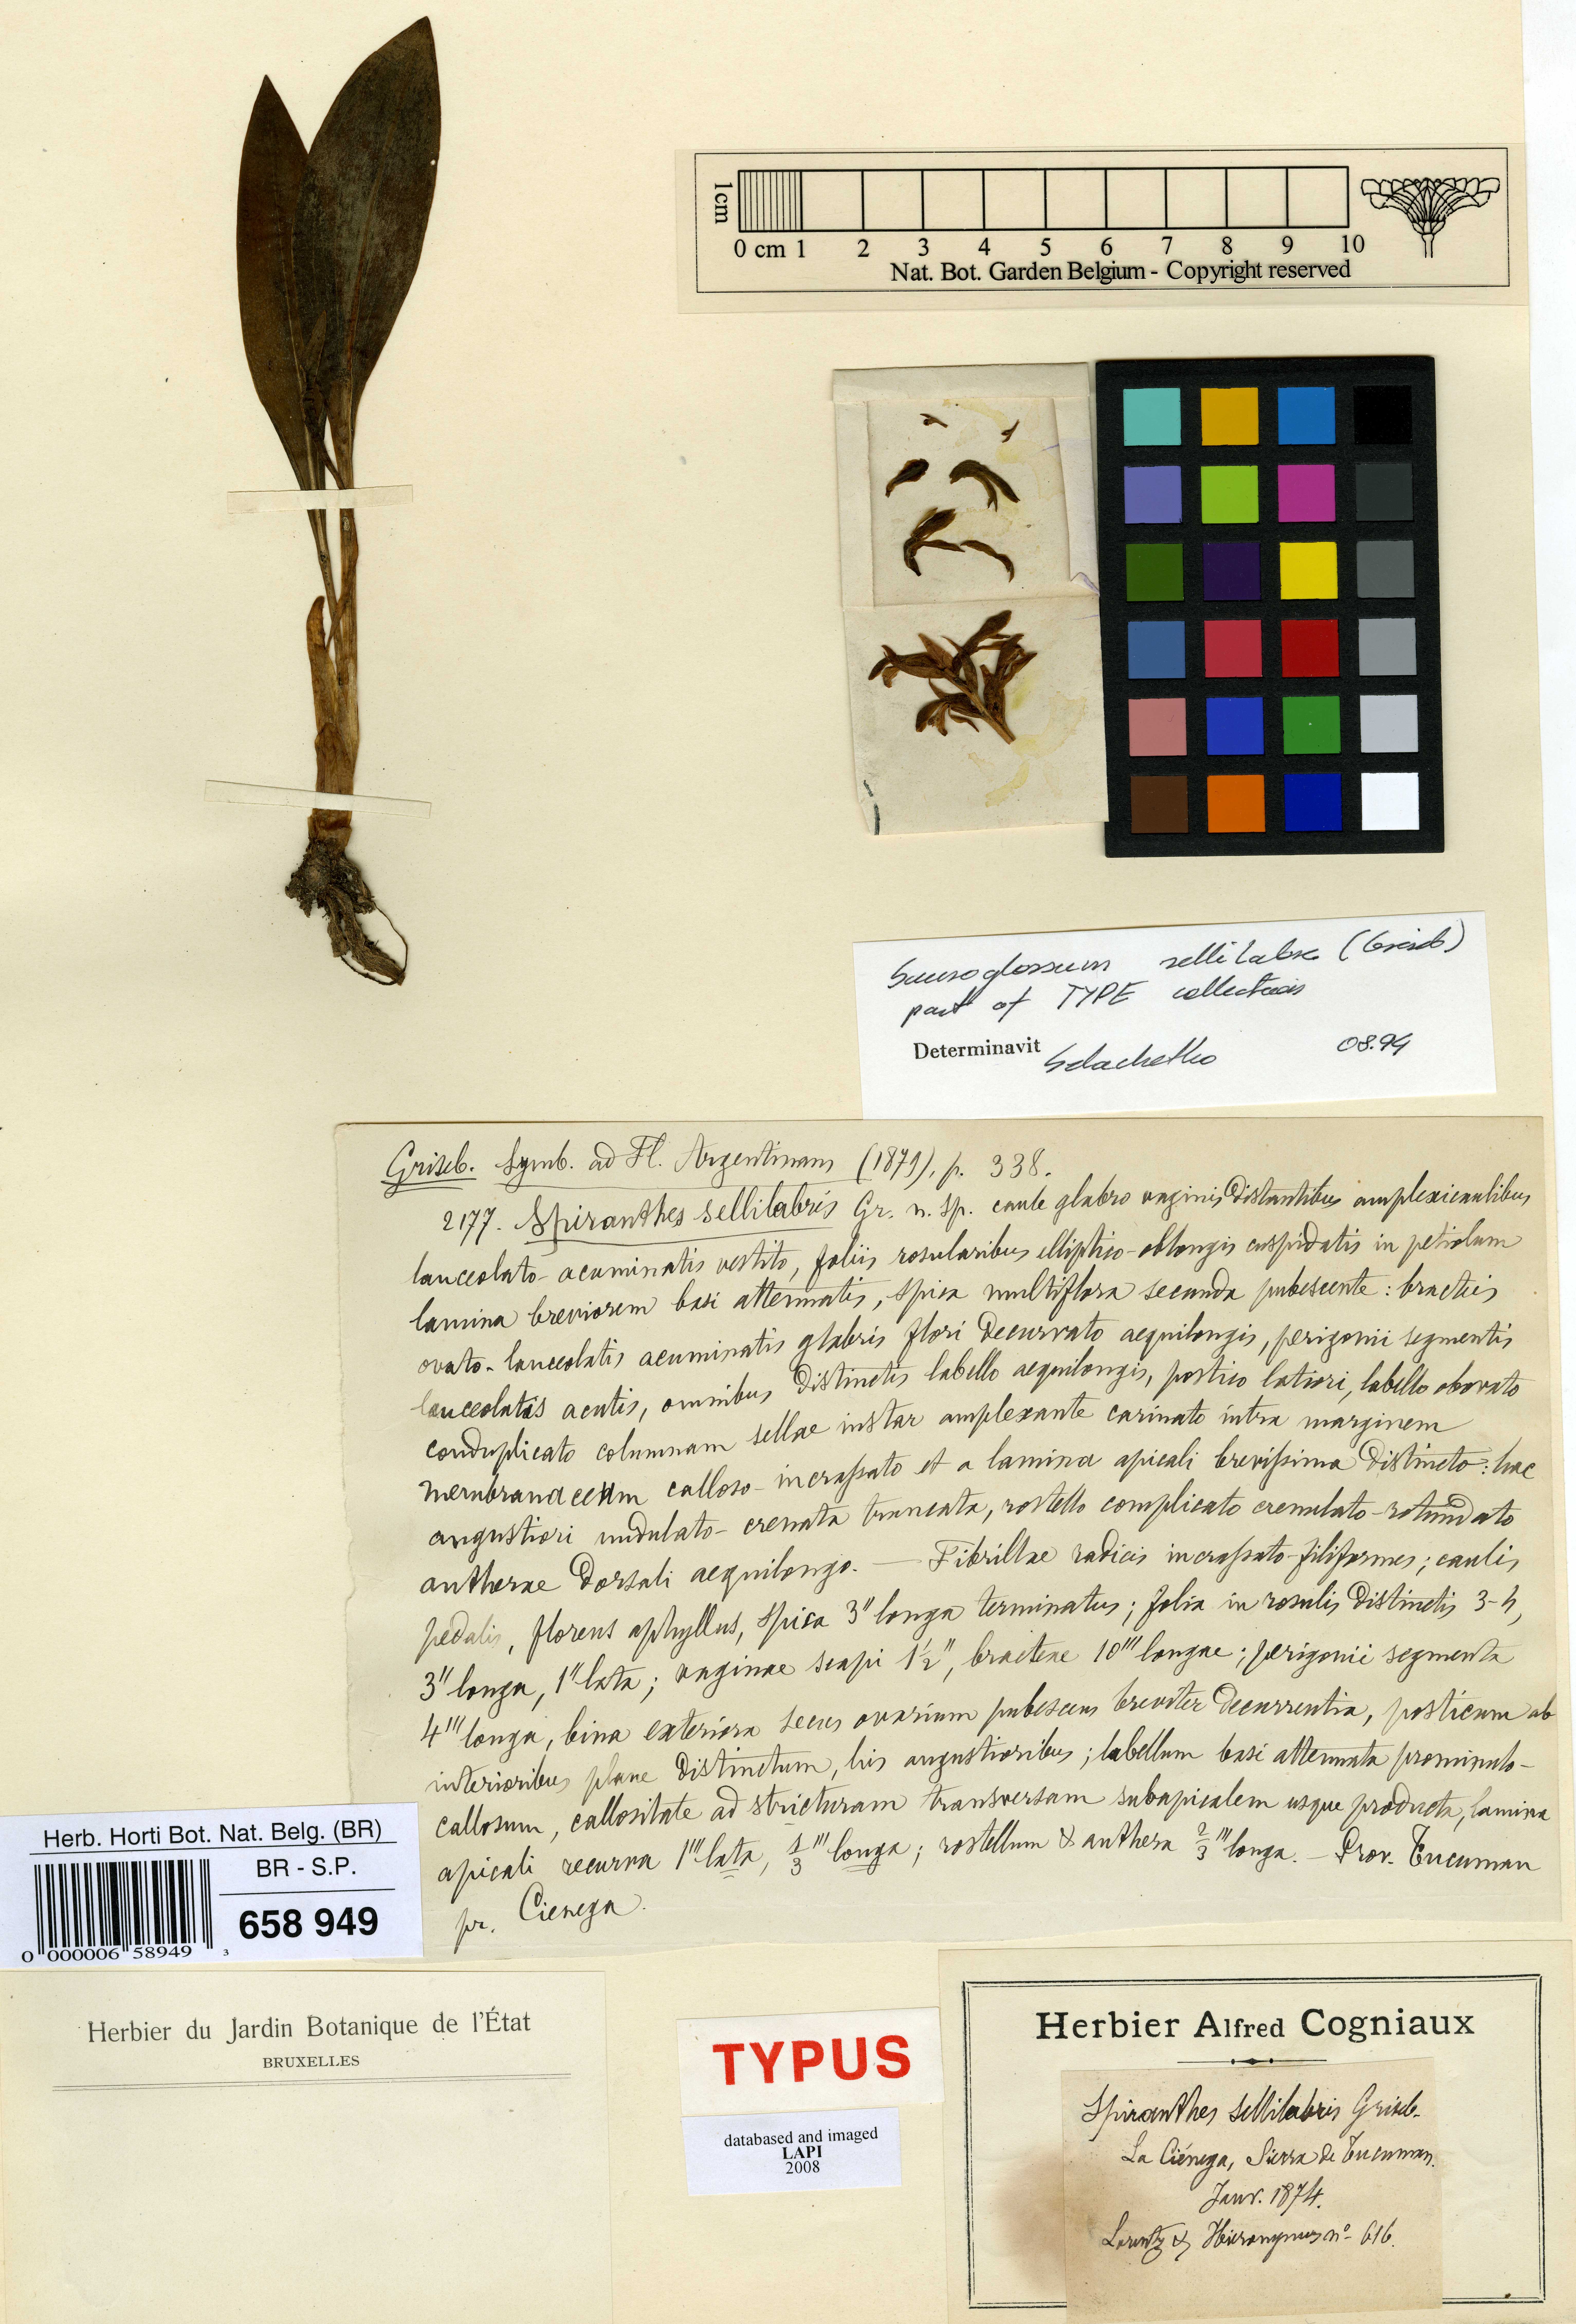 1cm
0 cm 1 2 3 4 5 6 7 8 9 10
Nat. Bot. Garden Belgium - Copyright reserved
Sauroglossum sellilabre (Griseb)
part of TYPE collection
Determinavit Szlachetko 08.94
Griseb. Symb. ad Fl. Argentinam (1879), p. 338.
2177. Spiranthes sellilabris Gr. n. sp. caule glabro vaginis distantibus amplexicaulibus
lanceolato-acuminatis vestito, foliis rosularibus elliptico-oblongis cuspidatis in petiolum
lamina breviorem basi attenuatis, spica multiflora secunda pubescente: bracteis
ovato-lanceolatis acuminatis glabris flori decurvato aequilongis, perigonii segmentis
lanceolatis acutis, omnibus distinctis labello aequilongis, postico latiori, labello obovato
conduplicato columnam sellae instar amplexante carinato intra marginem
membranaceum calloso-incrassato et a lamina apicali brevissima distincto: hac
angustiori undulato-crenata truncata, rostello complicato crenulato-rotundato
antherae dorsali aequilongo. — Fibrillae radicis incrassato-filiformes; caulis
pedalis, florens aphyllus, spica 3" longa terminatus; folia in rosulis distinctis 3-4,
3" longa, 1" lata; vaginae scapi 1½", bracteae 10''' longae; perigonii segmenta
4''' longa, bina exteriora secus ovarium pubescens breviter decurrentia, posticum ab
interioribus plane distinctum, his angustioribus; labellum basi attenuata prominulo-
callosum, callositate ad stricturam transversam subapicalem usque producta, lamina
apicali recurva 1''' lata, 1/3''' longa; rostellum & anthera 2/3''' longa. — Prov. Tucuman
pr. Cienega.
Herb. Horti Bot. Nat. Belg. (BR)
BR - S.P.
658 949
0 000006 58949 3
Herbier du Jardin Botanique de l'État
BRUXELLES
TYPUS
databased and imaged
LAPI
2008
Herbier Alfred Cogniaux
Spiranthes sellilabris Griseb.
La Ciénega, Sierra de Tucuman.
Janv. 1874.
Lorentz & Hieronymus nº 616.